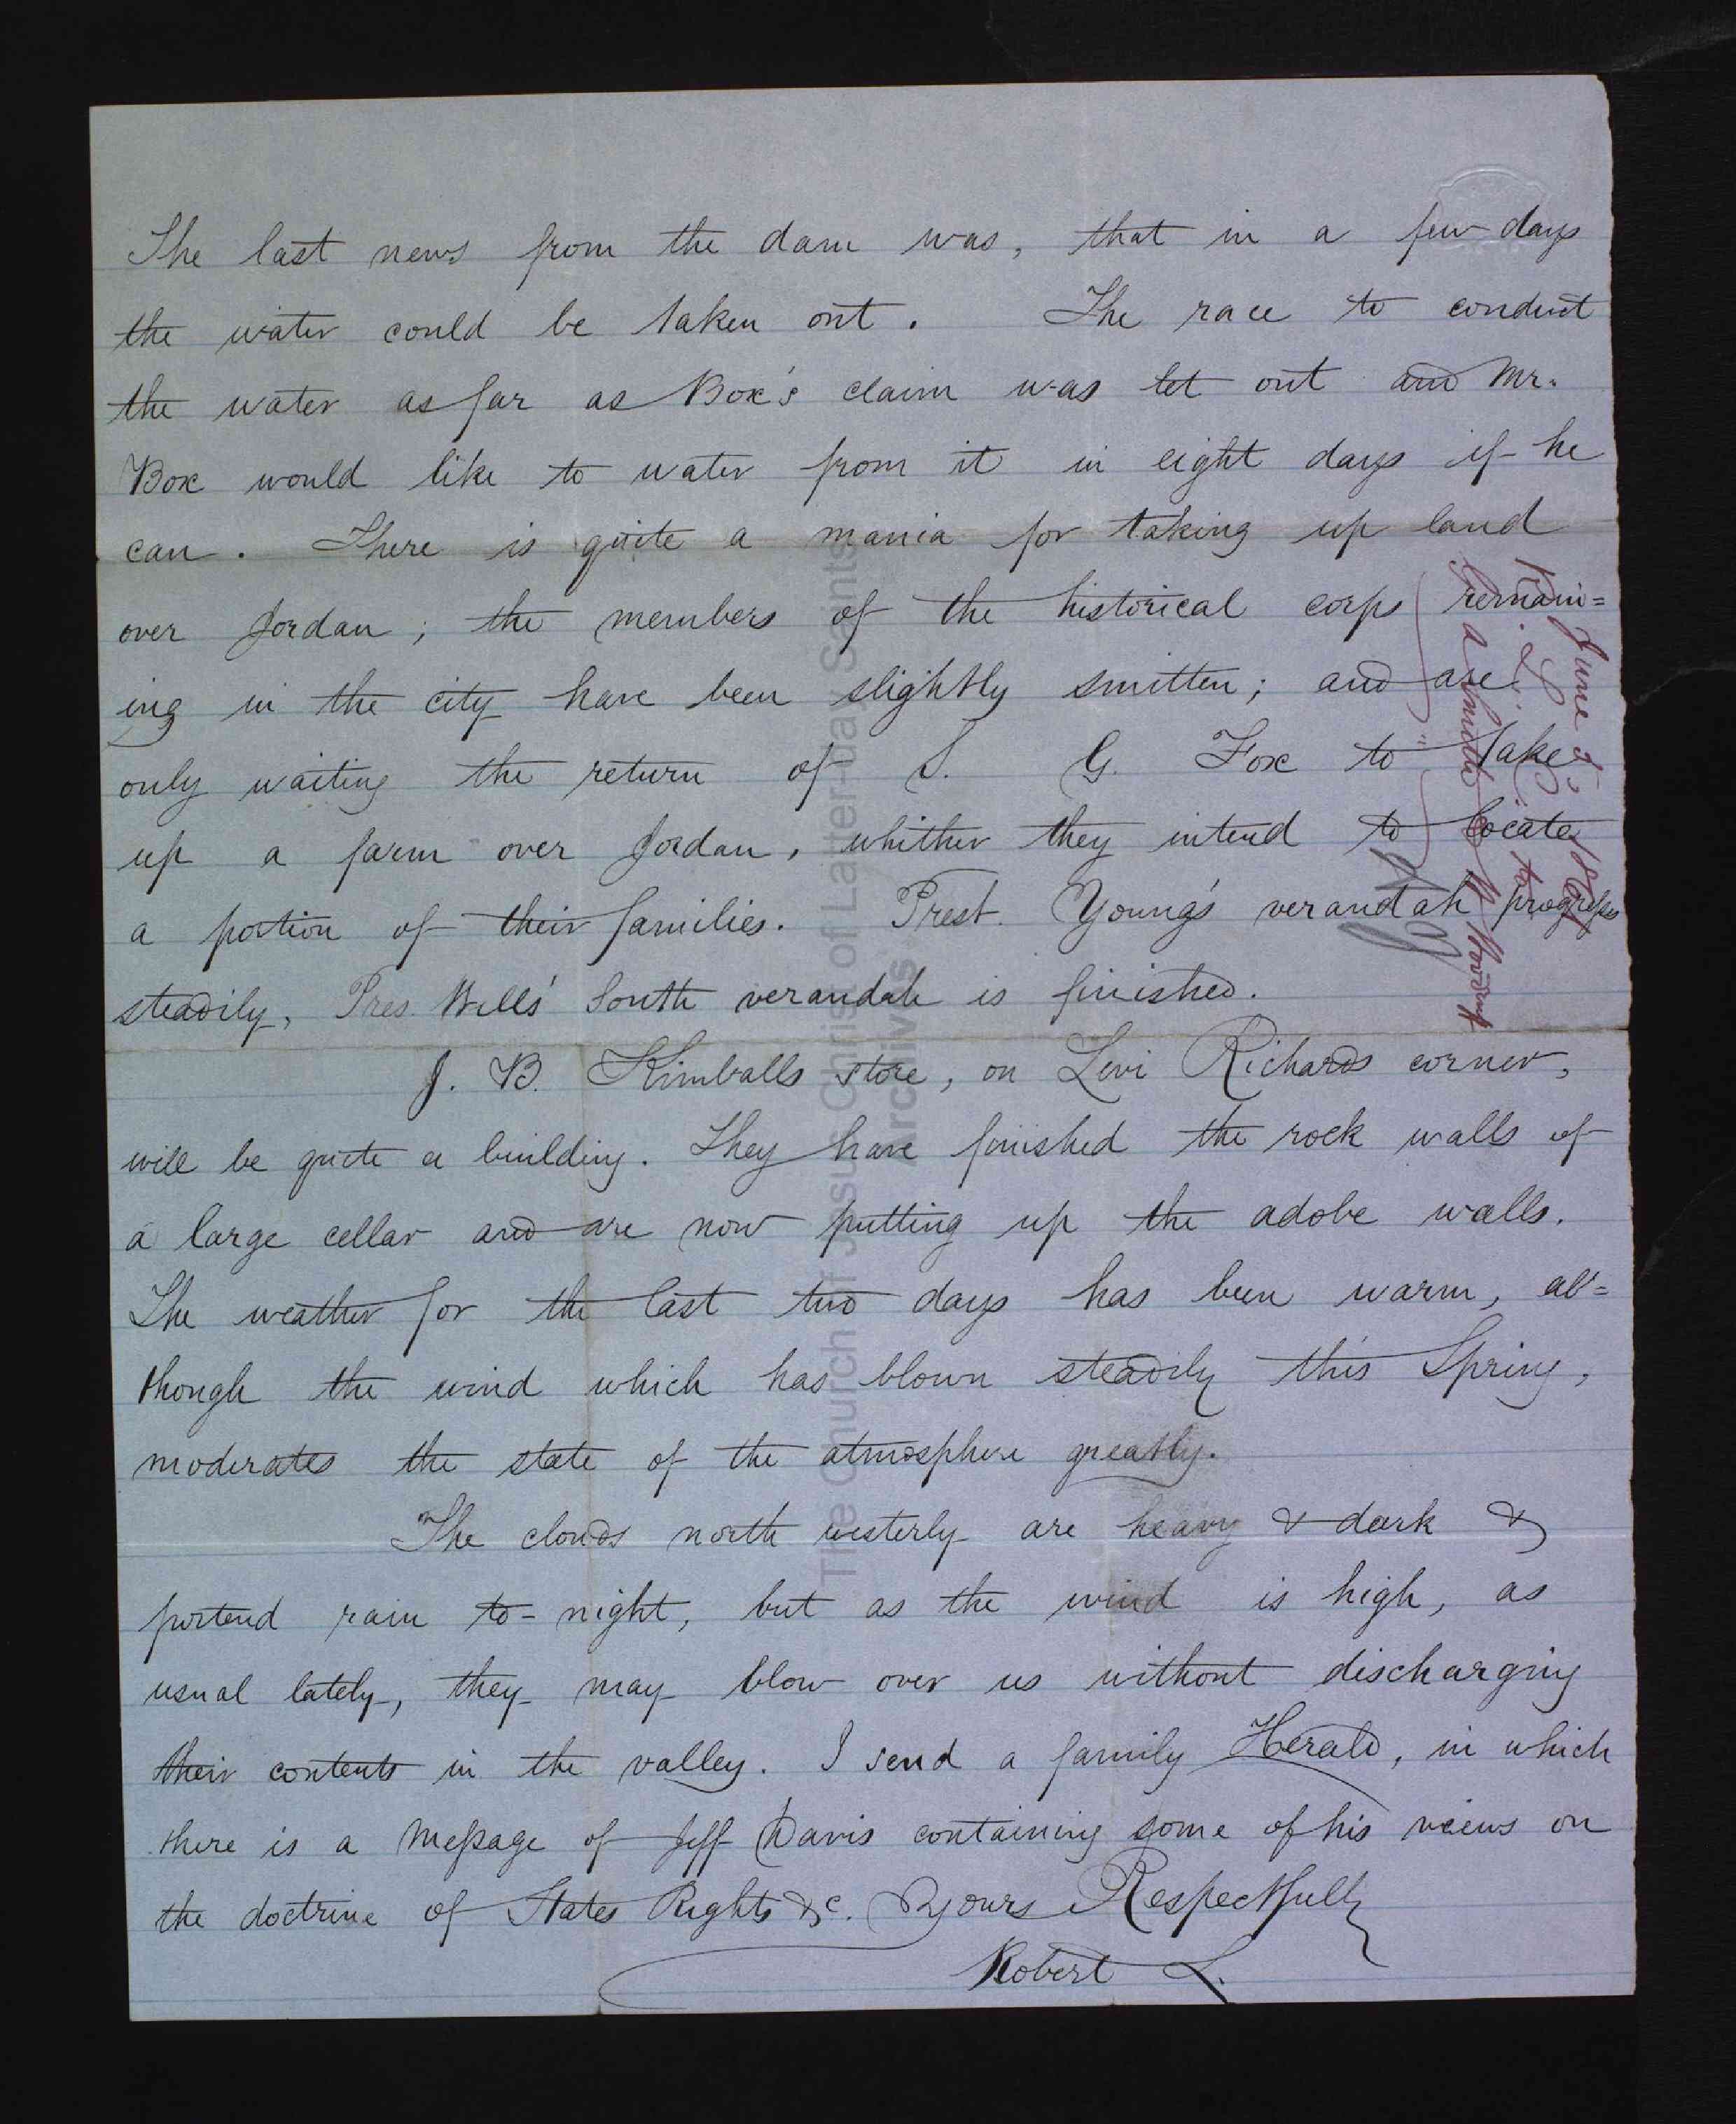 The last news from the dam was, that in a few days
the water could be taken out. The race to conduct
the water as far as Box's claim was let out and Mr.
Box would like to water from it in eight days if he
can. There is quite a mania for taking up land
over Jordan; the members of the historical corps remain=
ing in the city have been slightly smitten; and are
only waiting the return of J. G. Fox to take
up a farm over Jordan, whither they intend to locate
a portion of their families. Prest. Young's verandah progresses
steadily, Pres. Wells' South verandah is finished.
J. B. Kimballs store, on Levi Richards corner,
will be quite a building. They have finished the rock walls of
a large cellar and are now putting up the adobe walls.
The weather for the last two days has been warm, al=
though the wind which has blown steadily this Spring,
moderates the state of the atmosphere greatly.
The clouds north westerly are heavy & dark &
portend rain to-night, but as the wind is high, as
usual lately, they may blow over us without discharging
their contents in the valley. I send a family Herald, in which
there is a Message of Jeff Davis containing some of his views on
the doctrine of States Rights &c. Yours Respectfully
Robert L.
June
to
W Woodruff
The Church of Jesus Christ of Latter-day Saints
Archives